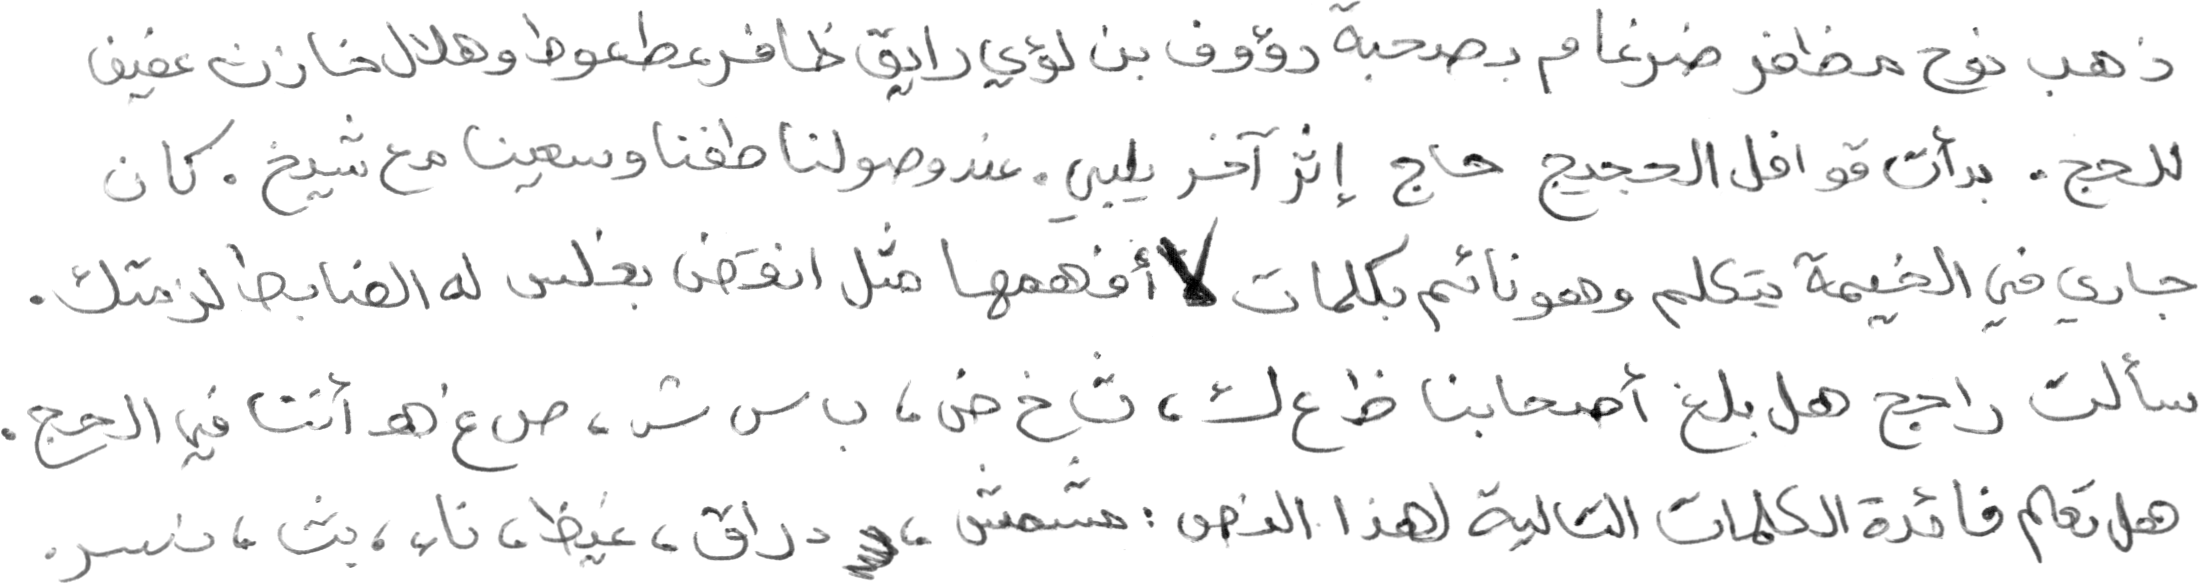 ذهب نوح مظفر ضرغام بصحبة رؤوف بن لؤي رايق ظافر عطعوط وهلال خازن عفيف
للحج. بدأت قوافل الحجيج حاج إثر آخر يلبي. عند وصولنا طفنا وسعينا مع شيخ. كان
جاري في الخيمة يتكلم وهو نائم بكلمات لا أفهمها مثل انقض بغلس له الضابط لزمتك.
سألت راجح هل بلغ أصحابنا ظ ع ك، ث خ ض، ب س ش، ص غ هـ أننا في الحج.
هل تعلم فائدة الكلمات التالية لهذا النص: مشمش، دراق، غيظ، ناء، بث، نسر.